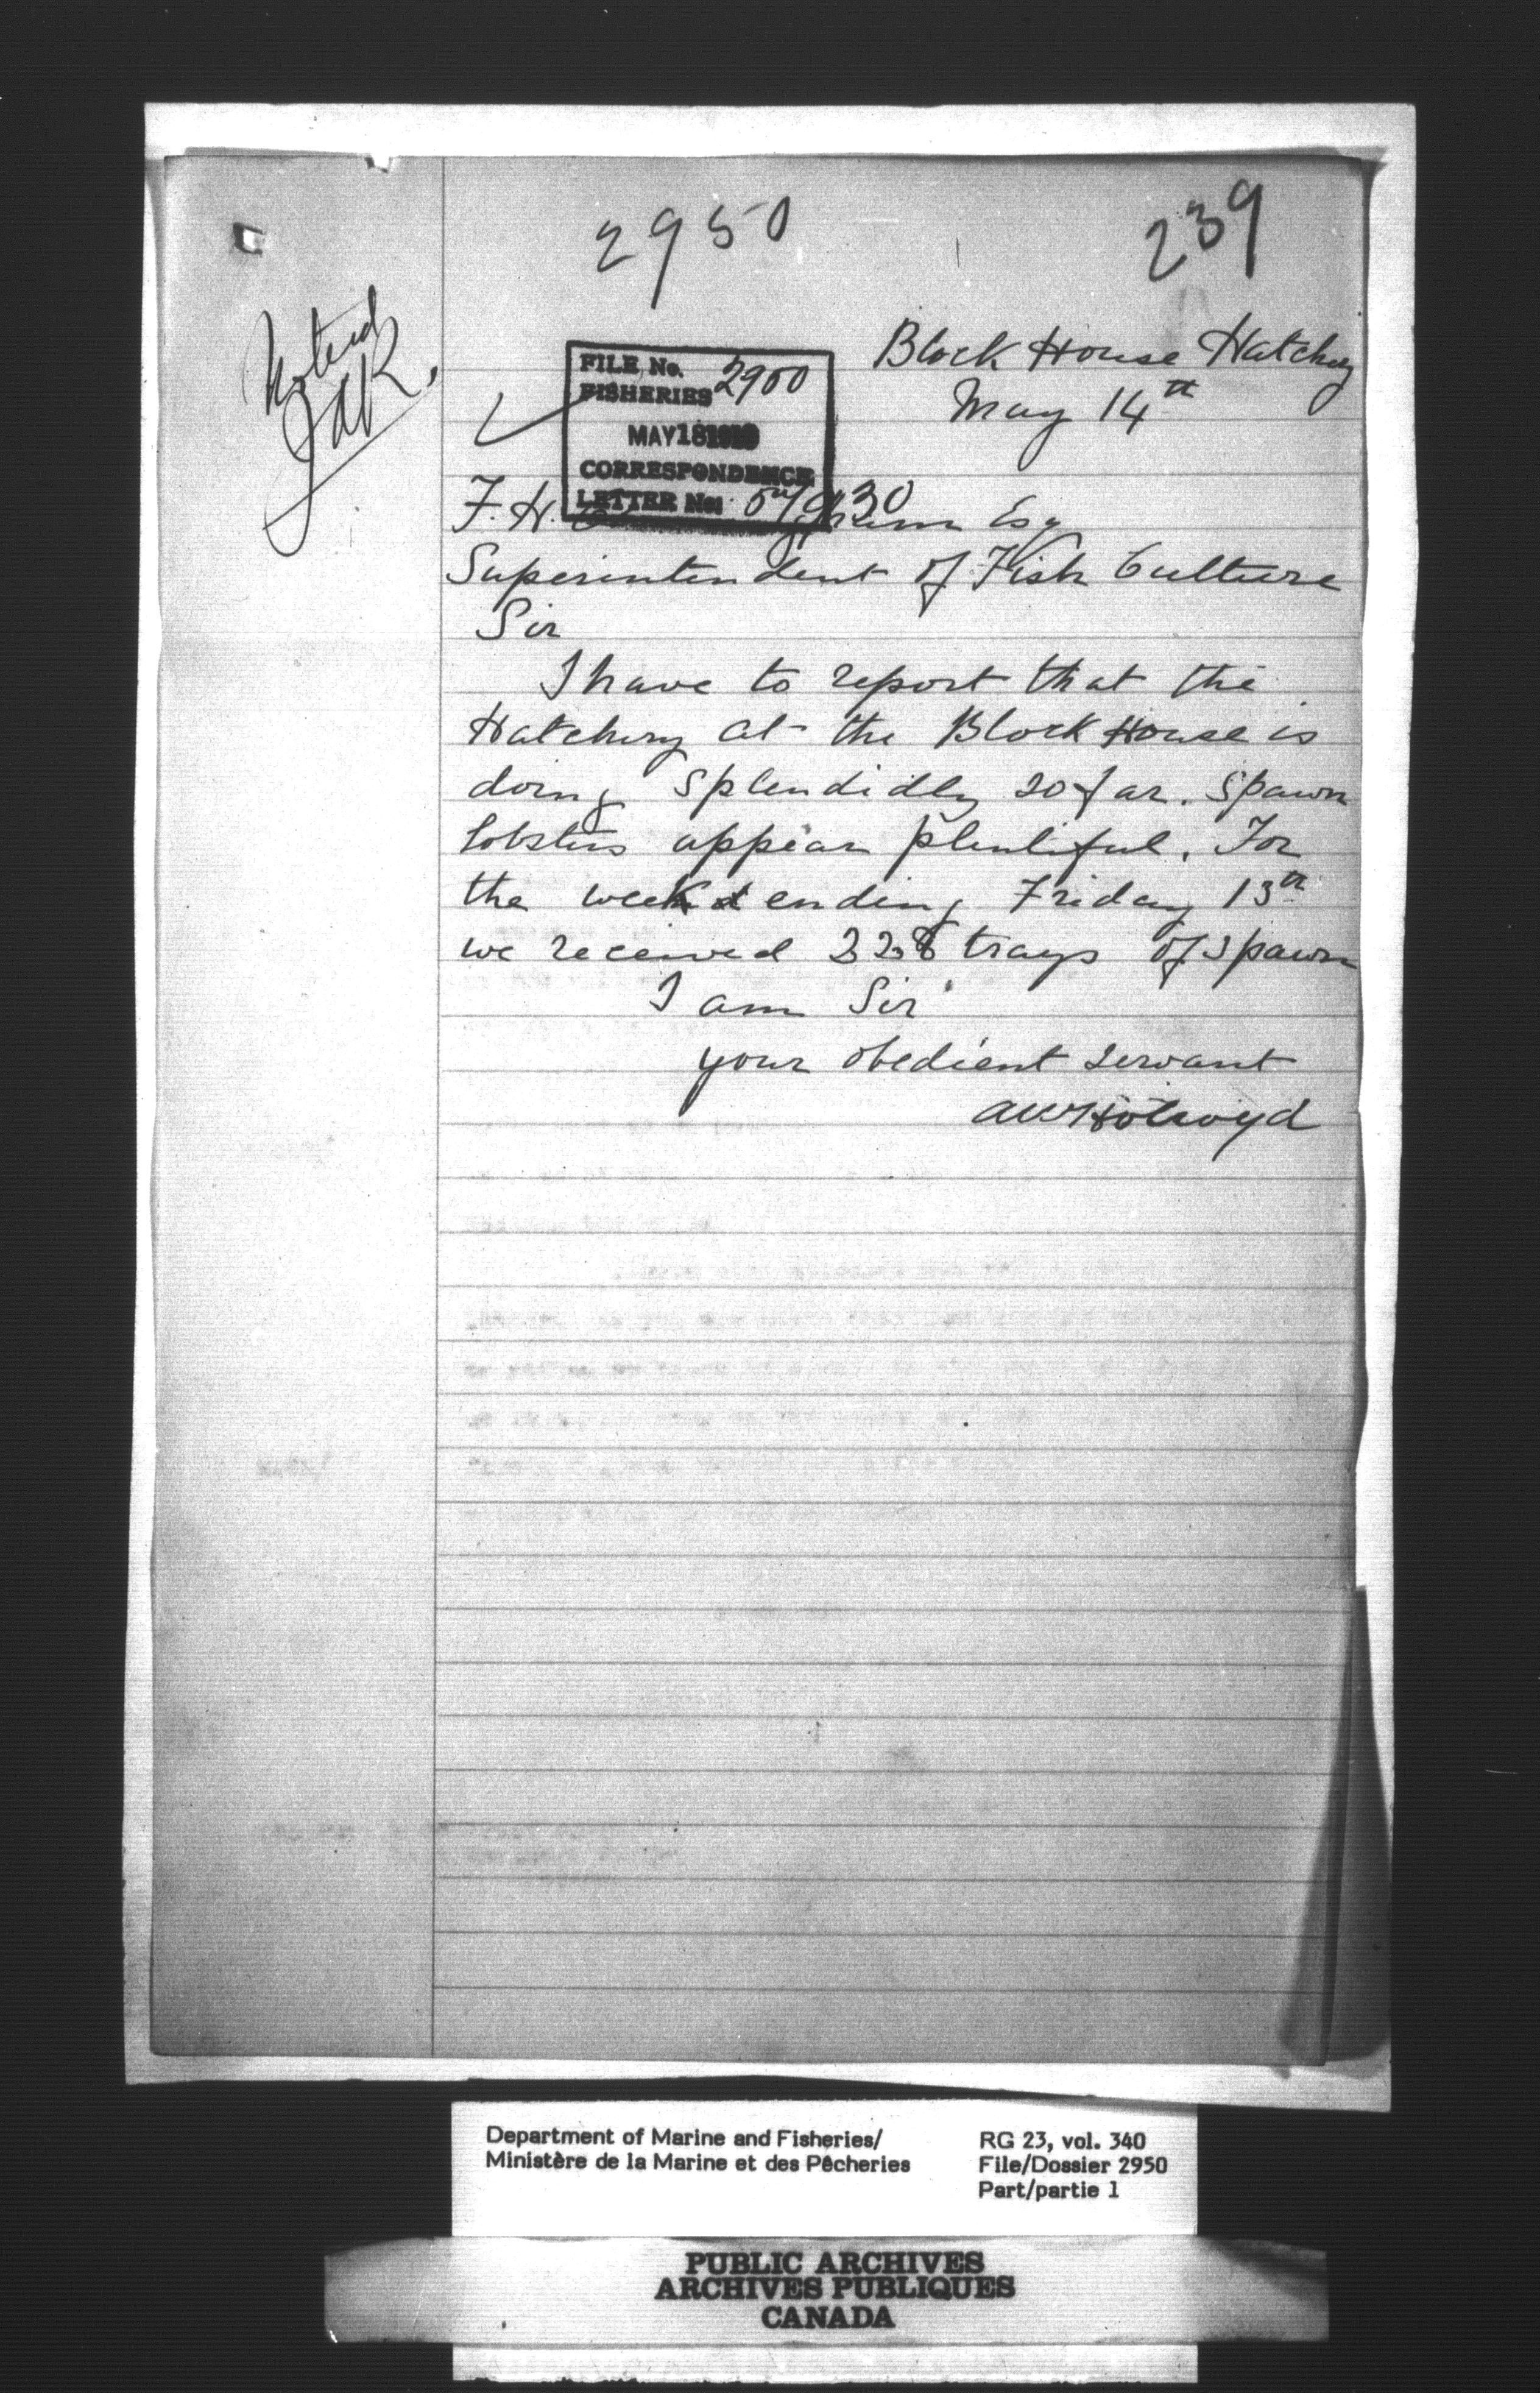 2950
239
Noted
Block House Hatchery
May 14th
FILE No. 2950
FISHERIES
MAY 18 1910
CORRESPONDENCE
LETTER No:
F. H. Esq
Superintendent of Fish Culture
Sir
I have to report that the
Hatchery at the Block House is
doing splendidly so far. Spawn
lobsters appear plentiful. For
the week ending Friday 13th
we received 228 trays of spawn
I am Sir
your obedient servant
AW Holroyd
Department of Marine and Fisheries/ RG 23, vol. 340
Ministère de la Marine et des Pêcheries File/Dossier 2950
Part/partie 1
PUBLIC ARCHIVES
ARCHIVES PUBLIQUES
CANADA